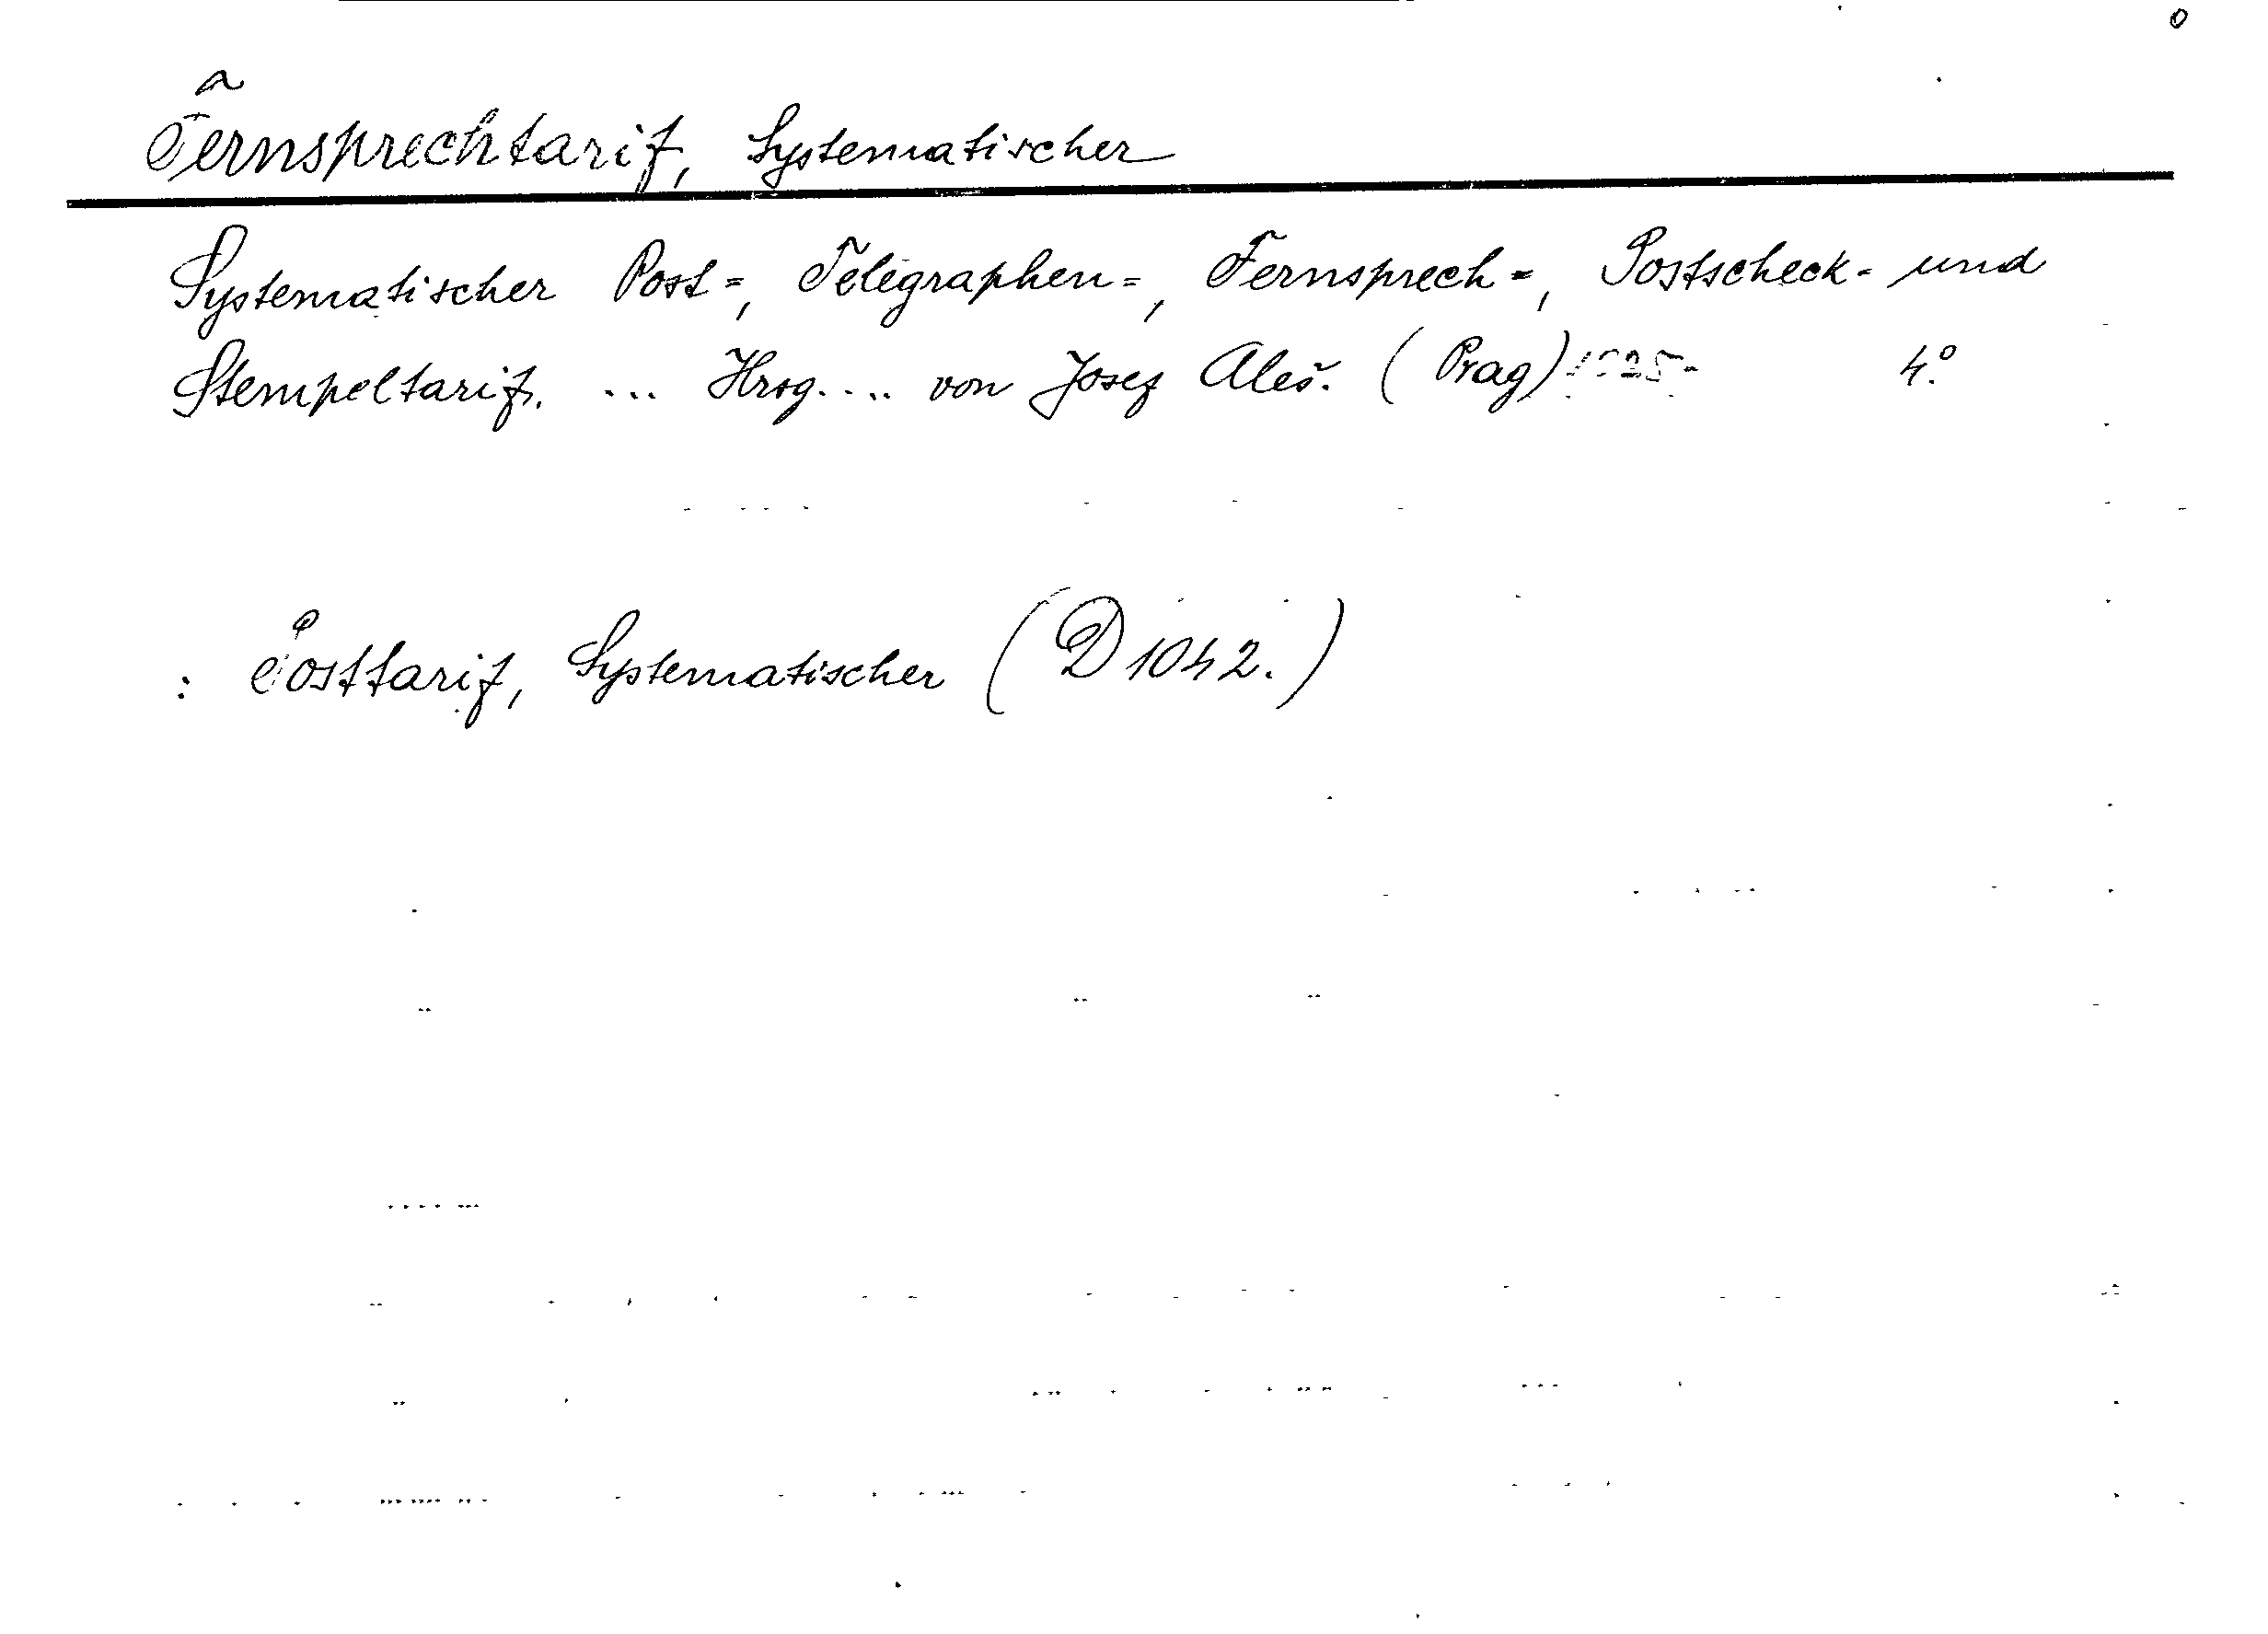 Fernsprechtarif, Systematischer
Systematischer Post=, Telegraphen=, Fernsprech=, Postscheck- und
Stempeltarif. ... Hrsg. ... von Josef Aleš. (Prag) 1925- 4°.
: Posttarif, Systematischer (D 1042.)